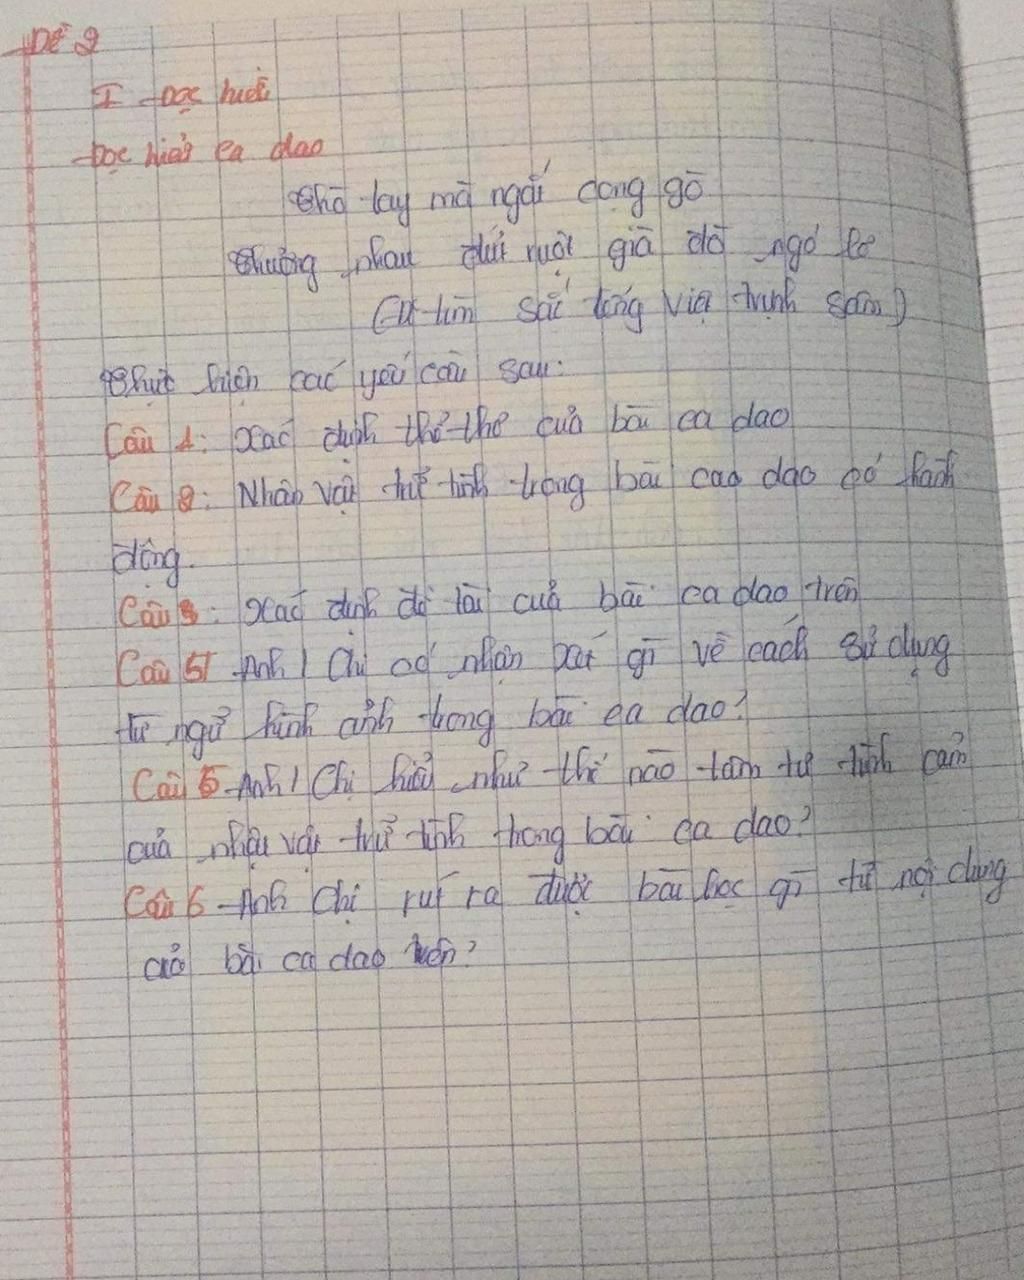 Đề 2
I Đọc hiểu
Đọc hiểu ca dao
Thò tay mà ngắt cọng ngò
Thương nhau đứt ruột giả đò ngó lơ
(Từ tìm sắc tiếng việt trịnh sâm)
Thực hiện các yêu cầu sau:
Câu 1: Xác định thể thơ của bài ca dao
Câu 2: Nhân vật trữ tình trong bài cao dao có hành
động.
Câu 3: Xác định đề tài của bài ca dao trên
Câu 51 Anh / Chị có nhận xét gì về cách sử dụng
từ ngữ hình ảnh trong bài ca dao?
Câu 5 Anh / Chị hiểu như thế nào tâm tư tình cảm
của nhậu vật trữ tình trong bài ca dao?
Câu 6 Anh Chị rút ra được bài học gì từ nội dung
của bài ca dao trên?